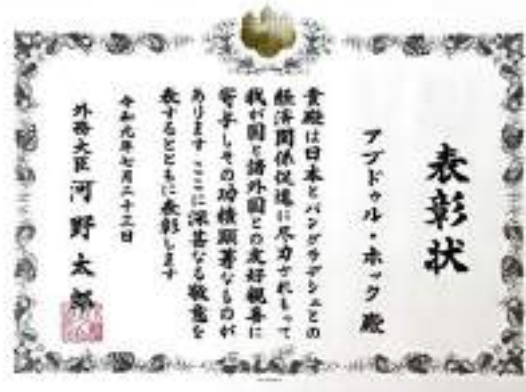 表彰状
アブドゥル・ホック 殿
貴殿は日本とバングラデシュとの
経済関係促進に尽力されもって
我が国と諸外国との友好親善に
寄与しその功績顕著なるものが
あります ここに深甚なる敬意を
表するとともに表彰します
令和元年七月二十三日
外務大臣 河野太郎